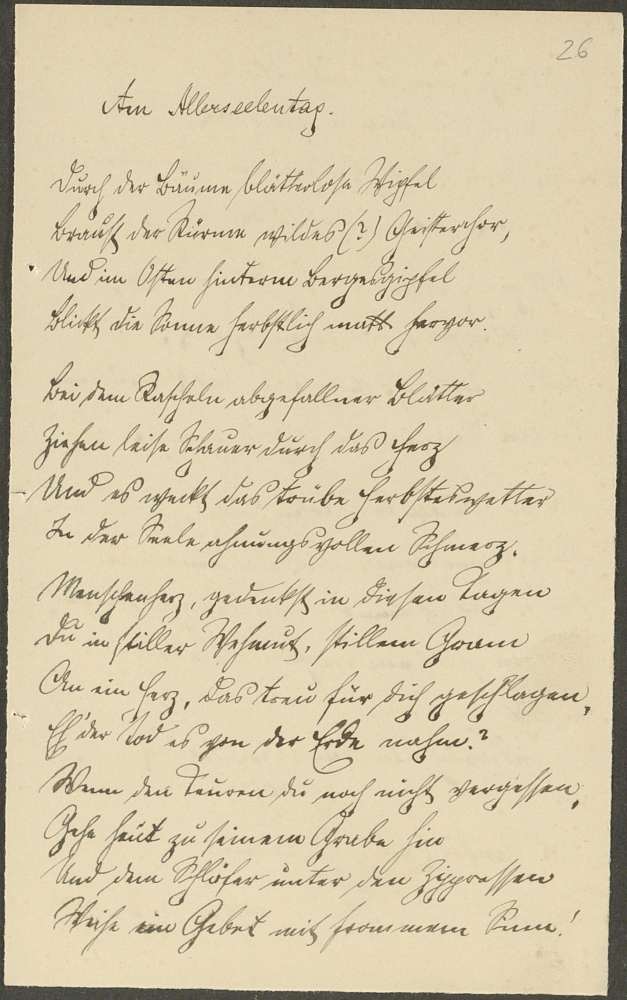 26
Am Allerseelentag.
Durch der Bäume blätterlose Wipfel
Braust der Stürme wildes (?) Geisterchor,
Und im Osten hinterm Bergesgipfel
Blickt die Sonne herbstlich matt hervor.
Bei dem Rascheln abgefallner Blätter
Ziehen leise Schauer durch das Herz
Und es weckt das trübe Herbsteswetter
In der Seele ahnungsvollen Schmerz.
Menschenherz, gedenkst in diesen Tagen
Du in stiller Wehmut, stillem Gram
An ein Herz, das treu für dich geschlagen,
Eh' der Tod es von der Erde nahm?
Wenn den Teuren du noch nicht vergessen,
Gehe heut zu seinem Grabe hin
Und dem Schläfer unter den Zypressen
Weihe ein Gebet mit frommem Sinn!